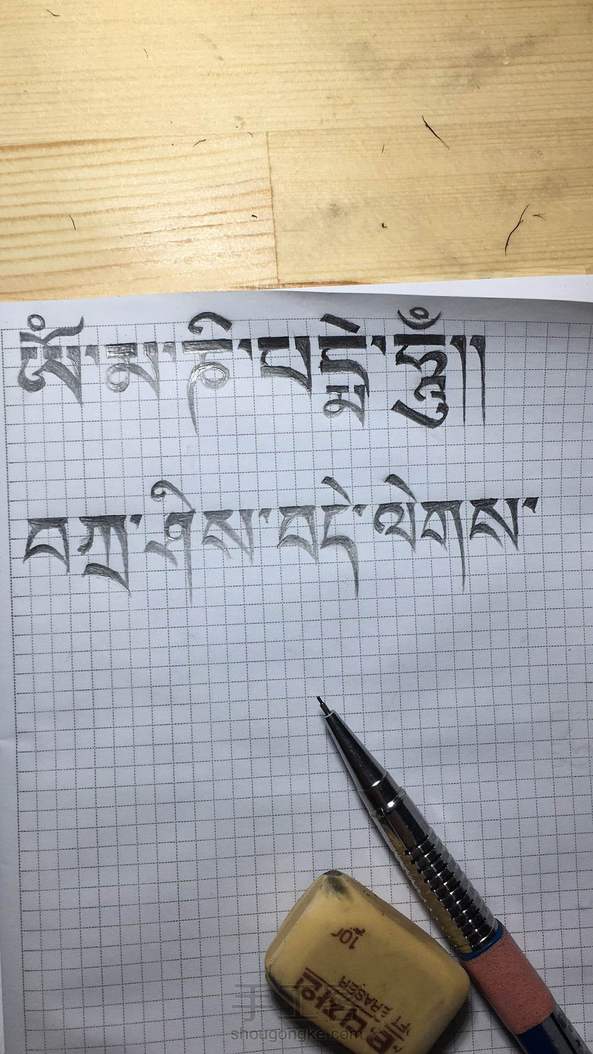 ༀ་མ་ཎི་པདྨེ་ཧཱུྃ།།
བཀྲ་ཤིས་བདེ་ལེགས་
10r
FT ERASER
手工客
shougongke.com